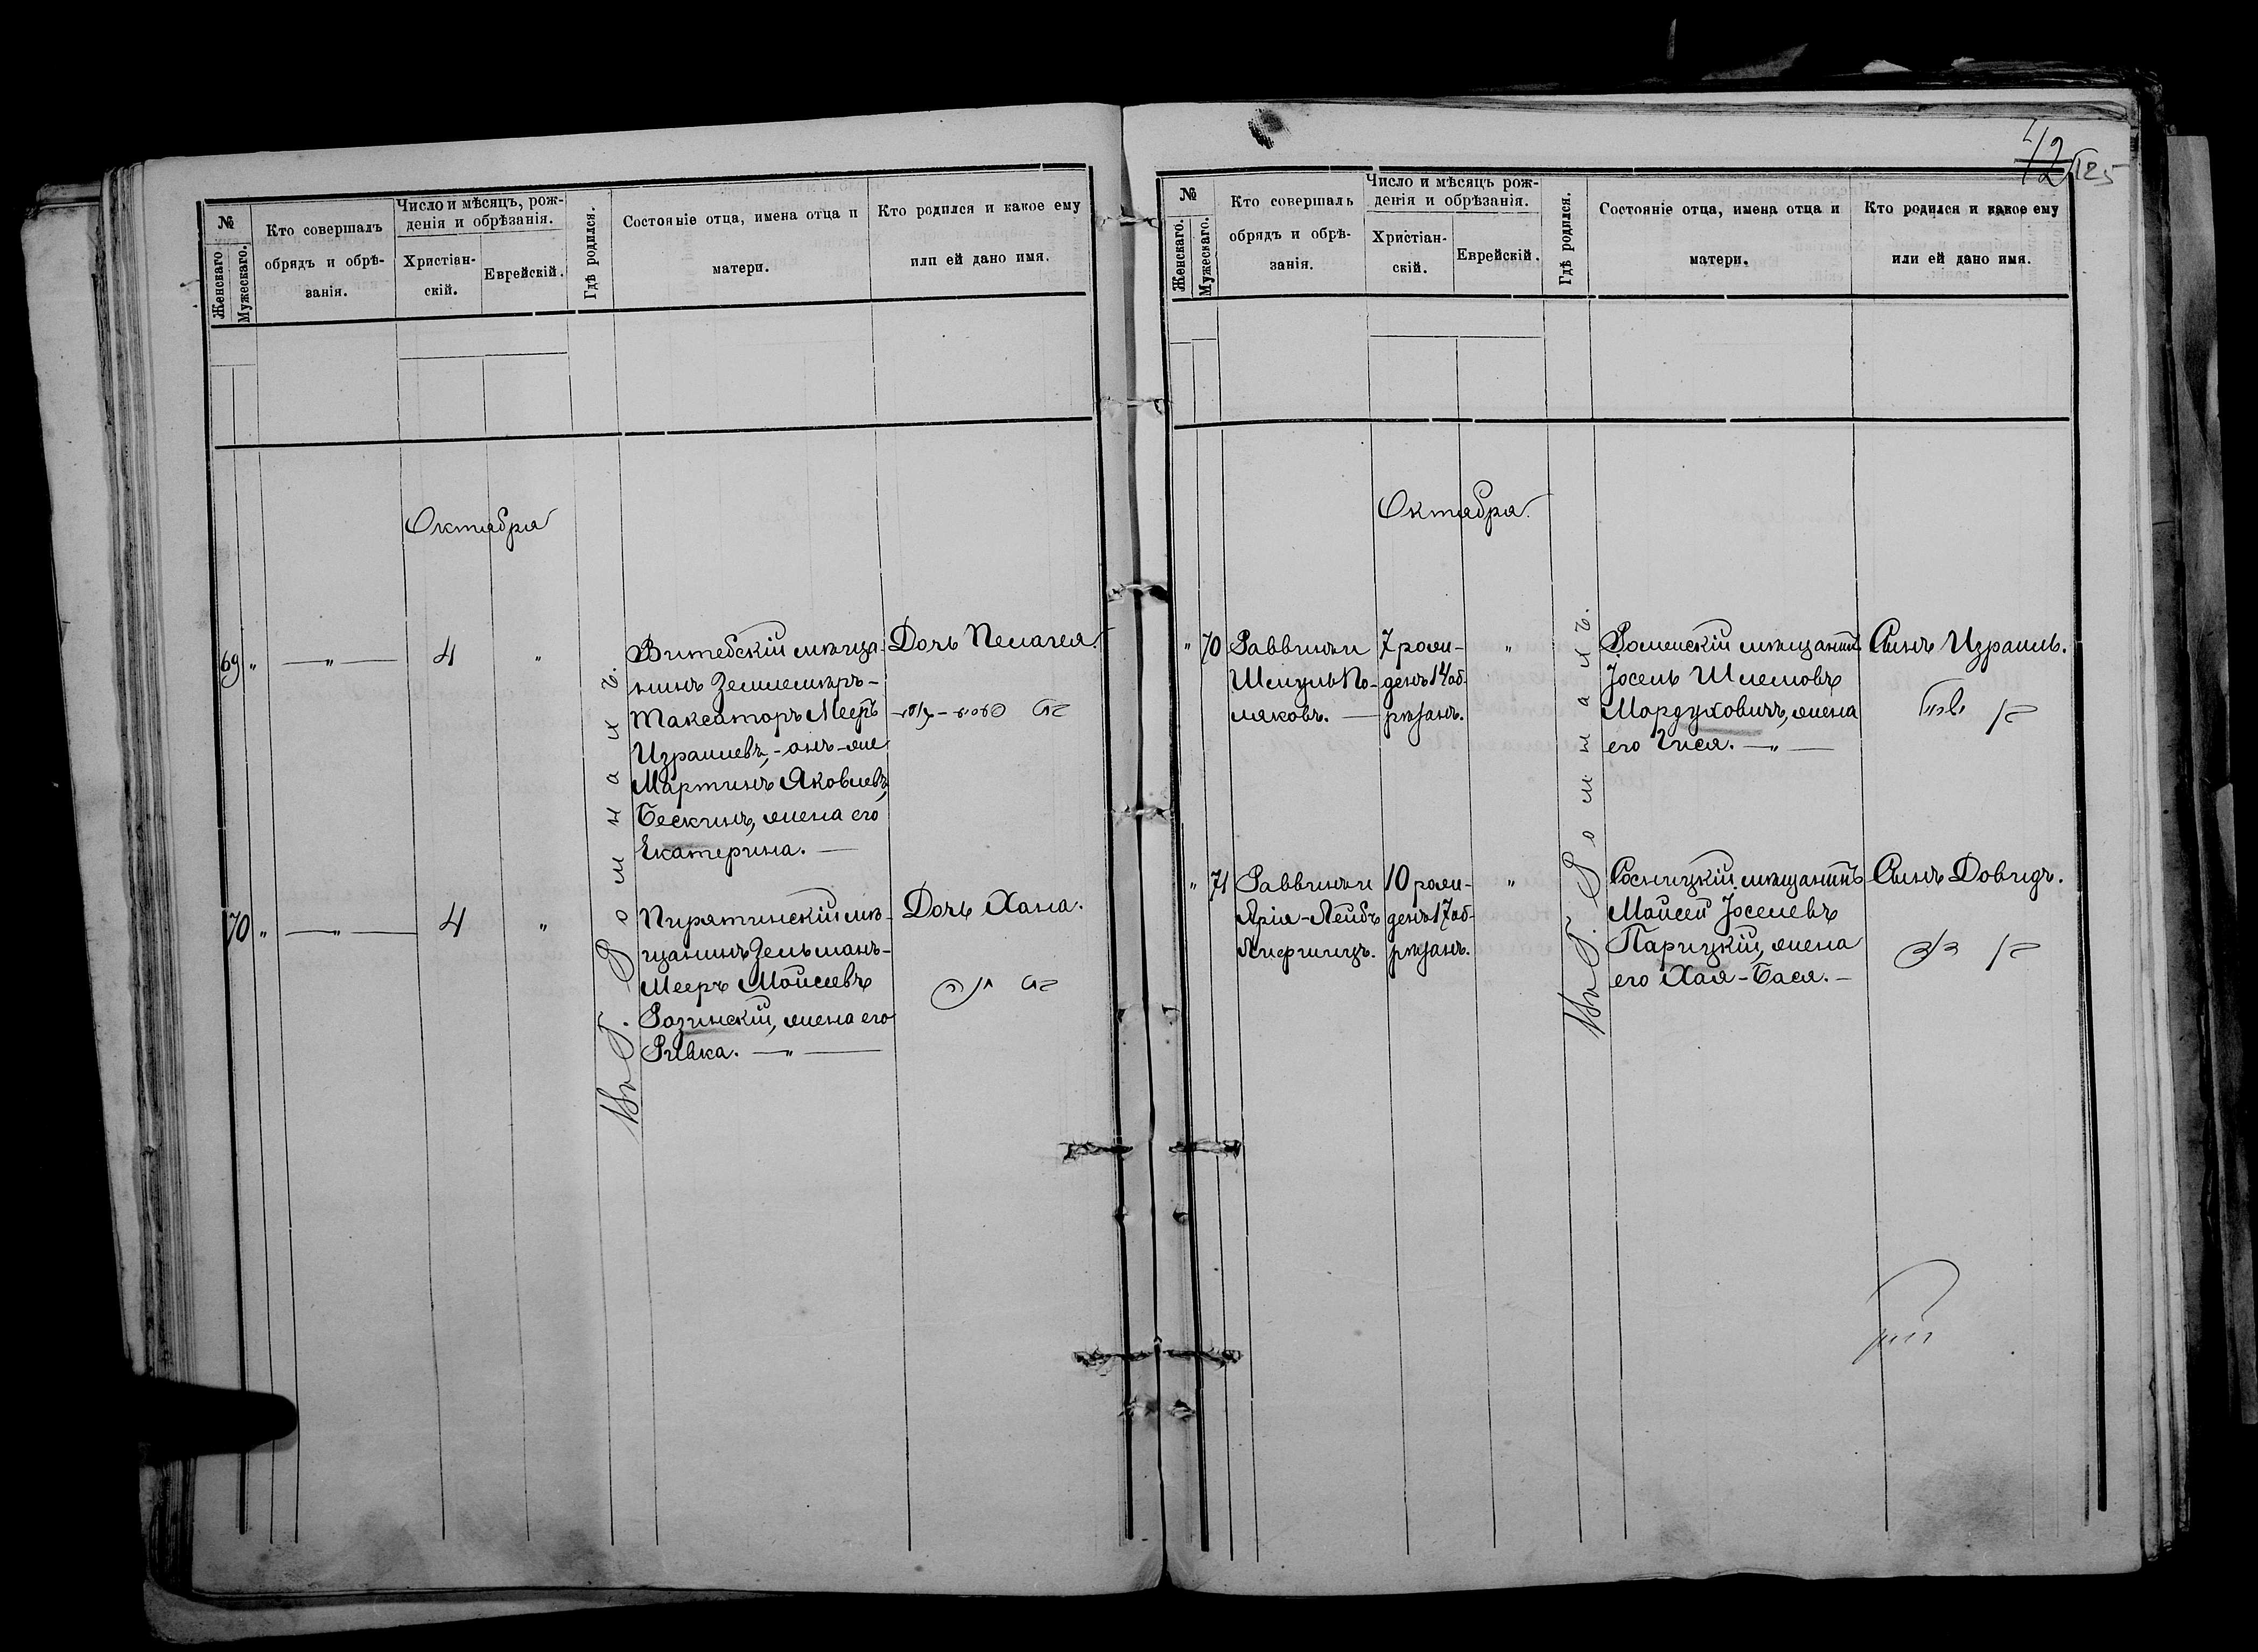 №
Женскаго.
Мужескаго.
Кто совершалъ
обрядъ и обрѣ-
занія.
Число и мѣсяцъ, рож-
денія и обрѣзанія.
Христіан-
скій.
Еврейскій.
Гдѣ родился.
Состояніе отца, имена отца и
матери.
Кто родился и какое ему
или ей дано имя.
Октября
69 " — " — 4 "
Витебскій мѣща-
нинъ Землемѣръ-
Таксаторъ Мееръ
Израилевъ, - онъ-же
Мартинъ Яковлевъ,
Бескинъ, жена его
Екатерина. —
Дочь Пелагея.
70 " — " — 4 "
Пирятинскій мѣ-
щанинъ Зельманъ-
Мееръ Мойсеевъ
Розинскій, жена его
Ривка. — " —
Дочь Хана.
בת חנה
Въ Г. Ромнахъ.
42
125
№
Женскаго.
Мужескаго.
Кто совершалъ
обрядъ и обрѣ-
занія.
Число и мѣсяцъ рож-
денія и обрѣзанія.
Христіан-
скій.
Еврейскій.
Гдѣ родился.
Состояніе отца, имена отца и
матери.
Кто родился и какое ему
или ей дано имя.
Октября.
" 70
Раввинъ
Шмуль По-
ляковъ. —
7 рож-
денъ 14 об-
рѣзанъ.
"
Роменскій мѣщанинъ
Іосель Шлемовъ
Мордуховичъ, жена
его Гися. — " —
Сынъ Израиль.
בן ישראל
" 71
Раввинъ
Арія-Лейбъ
Лифшицъ.
10 рож-
денъ 17 об-
рѣзанъ.
"
Сосницкій мѣщанинъ
Мойсей Іоселевъ
Парицкій, жена
его Хая-Бася. —
Сынъ Довидъ.
בן דוד
Въ Г. Ромнахъ.